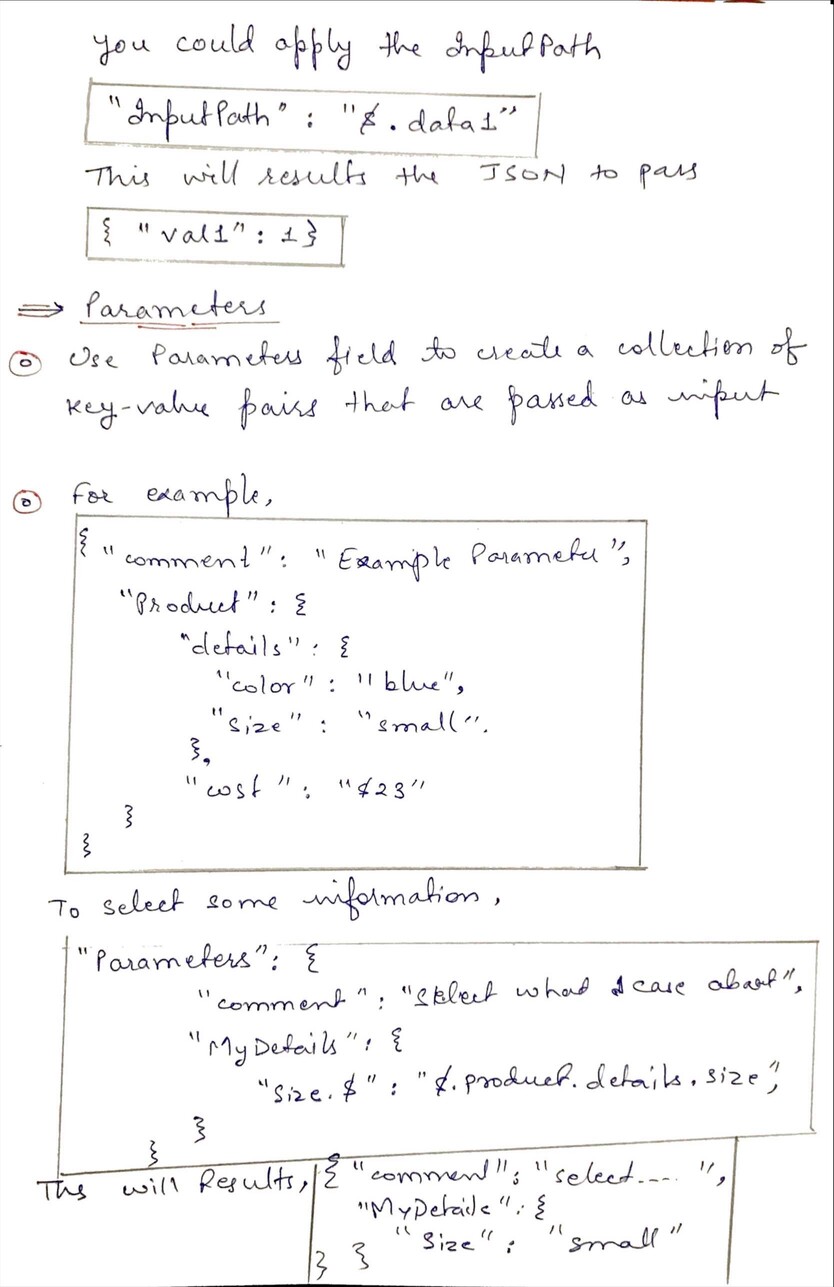 you could apply the InputPath
"InputPath" : "$.data1"
This will results the JSON to pass
{ "val1" : 1}
⇒ Parameters
Use Parameters field to create a collection of
key-value pairs that are passed as input
For example,
{ "comment" : "Example Parameter",
"Product" : {
"details" : {
"color" : "blue",
"size" : "small".
},
"cost" : "$23"
}
}
To select some information,
"Parameters": {
"comment" : "Select what I case about",
"MyDetails" : {
"Size.$" : "$.product.details.size",
}
}
This will Results, { "comment" : "select.... ",
"MyDetails" : {
"Size" : "small"
} }